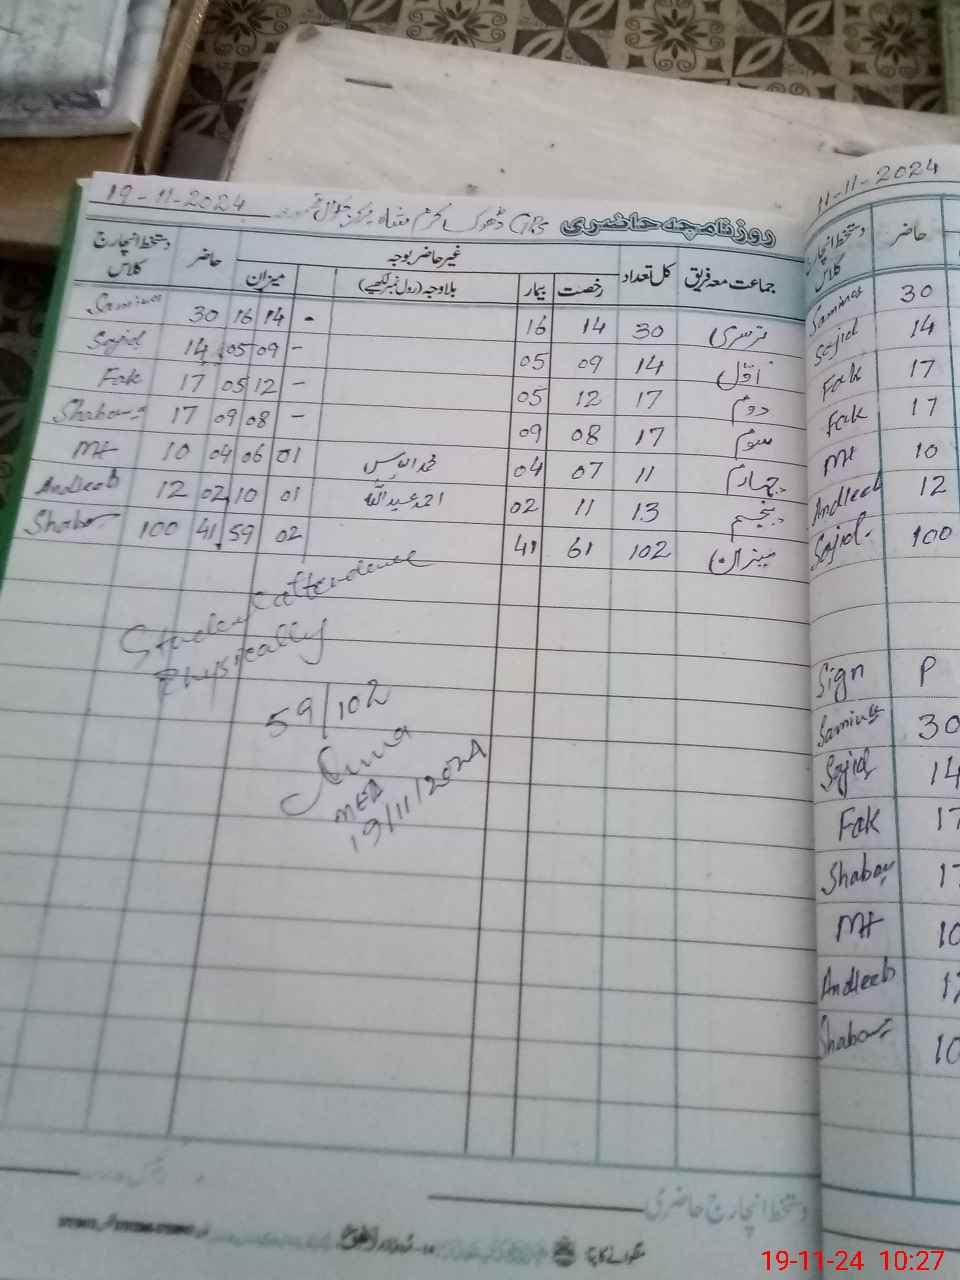 19-11-2024
روزنامچہ حاضری
جماعت معہ فریق کل تعداد غیر حاضر بوجہ حاضر دستخط انچارج کلاس
رخصت بیمار بلاوجہ (رول نمبر لکھیے) میزان
نرسری 30 14 16 - 14 16 30
اوّل 14 09 05 - 09 05 14 Sajid
دوم 17 12 05 - 12 05 17 Fak
سوم 17 08 09 - 08 09 17
چہارم 11 07 04 01 06 04 10 Mt
پنجم 13 11 02 احمد عبداللہ 01 10 02 12 Andleeb
میزان 102 61 41 02 59 41 100
attendence
Physically
59/102
19/11/2024
دستخط انچارج حاضری
11-11-2024
دستخط انچارج کلاس حاضر
Samina 30
Sajid 14
Fak 17
Fak 17
Mt 10
Andleeb 12
Sajid. 100
Sign P
Samina 30
Sajid 14
Fak 17
17
Mt 10
Andleeb
10
19-11-24 10:27